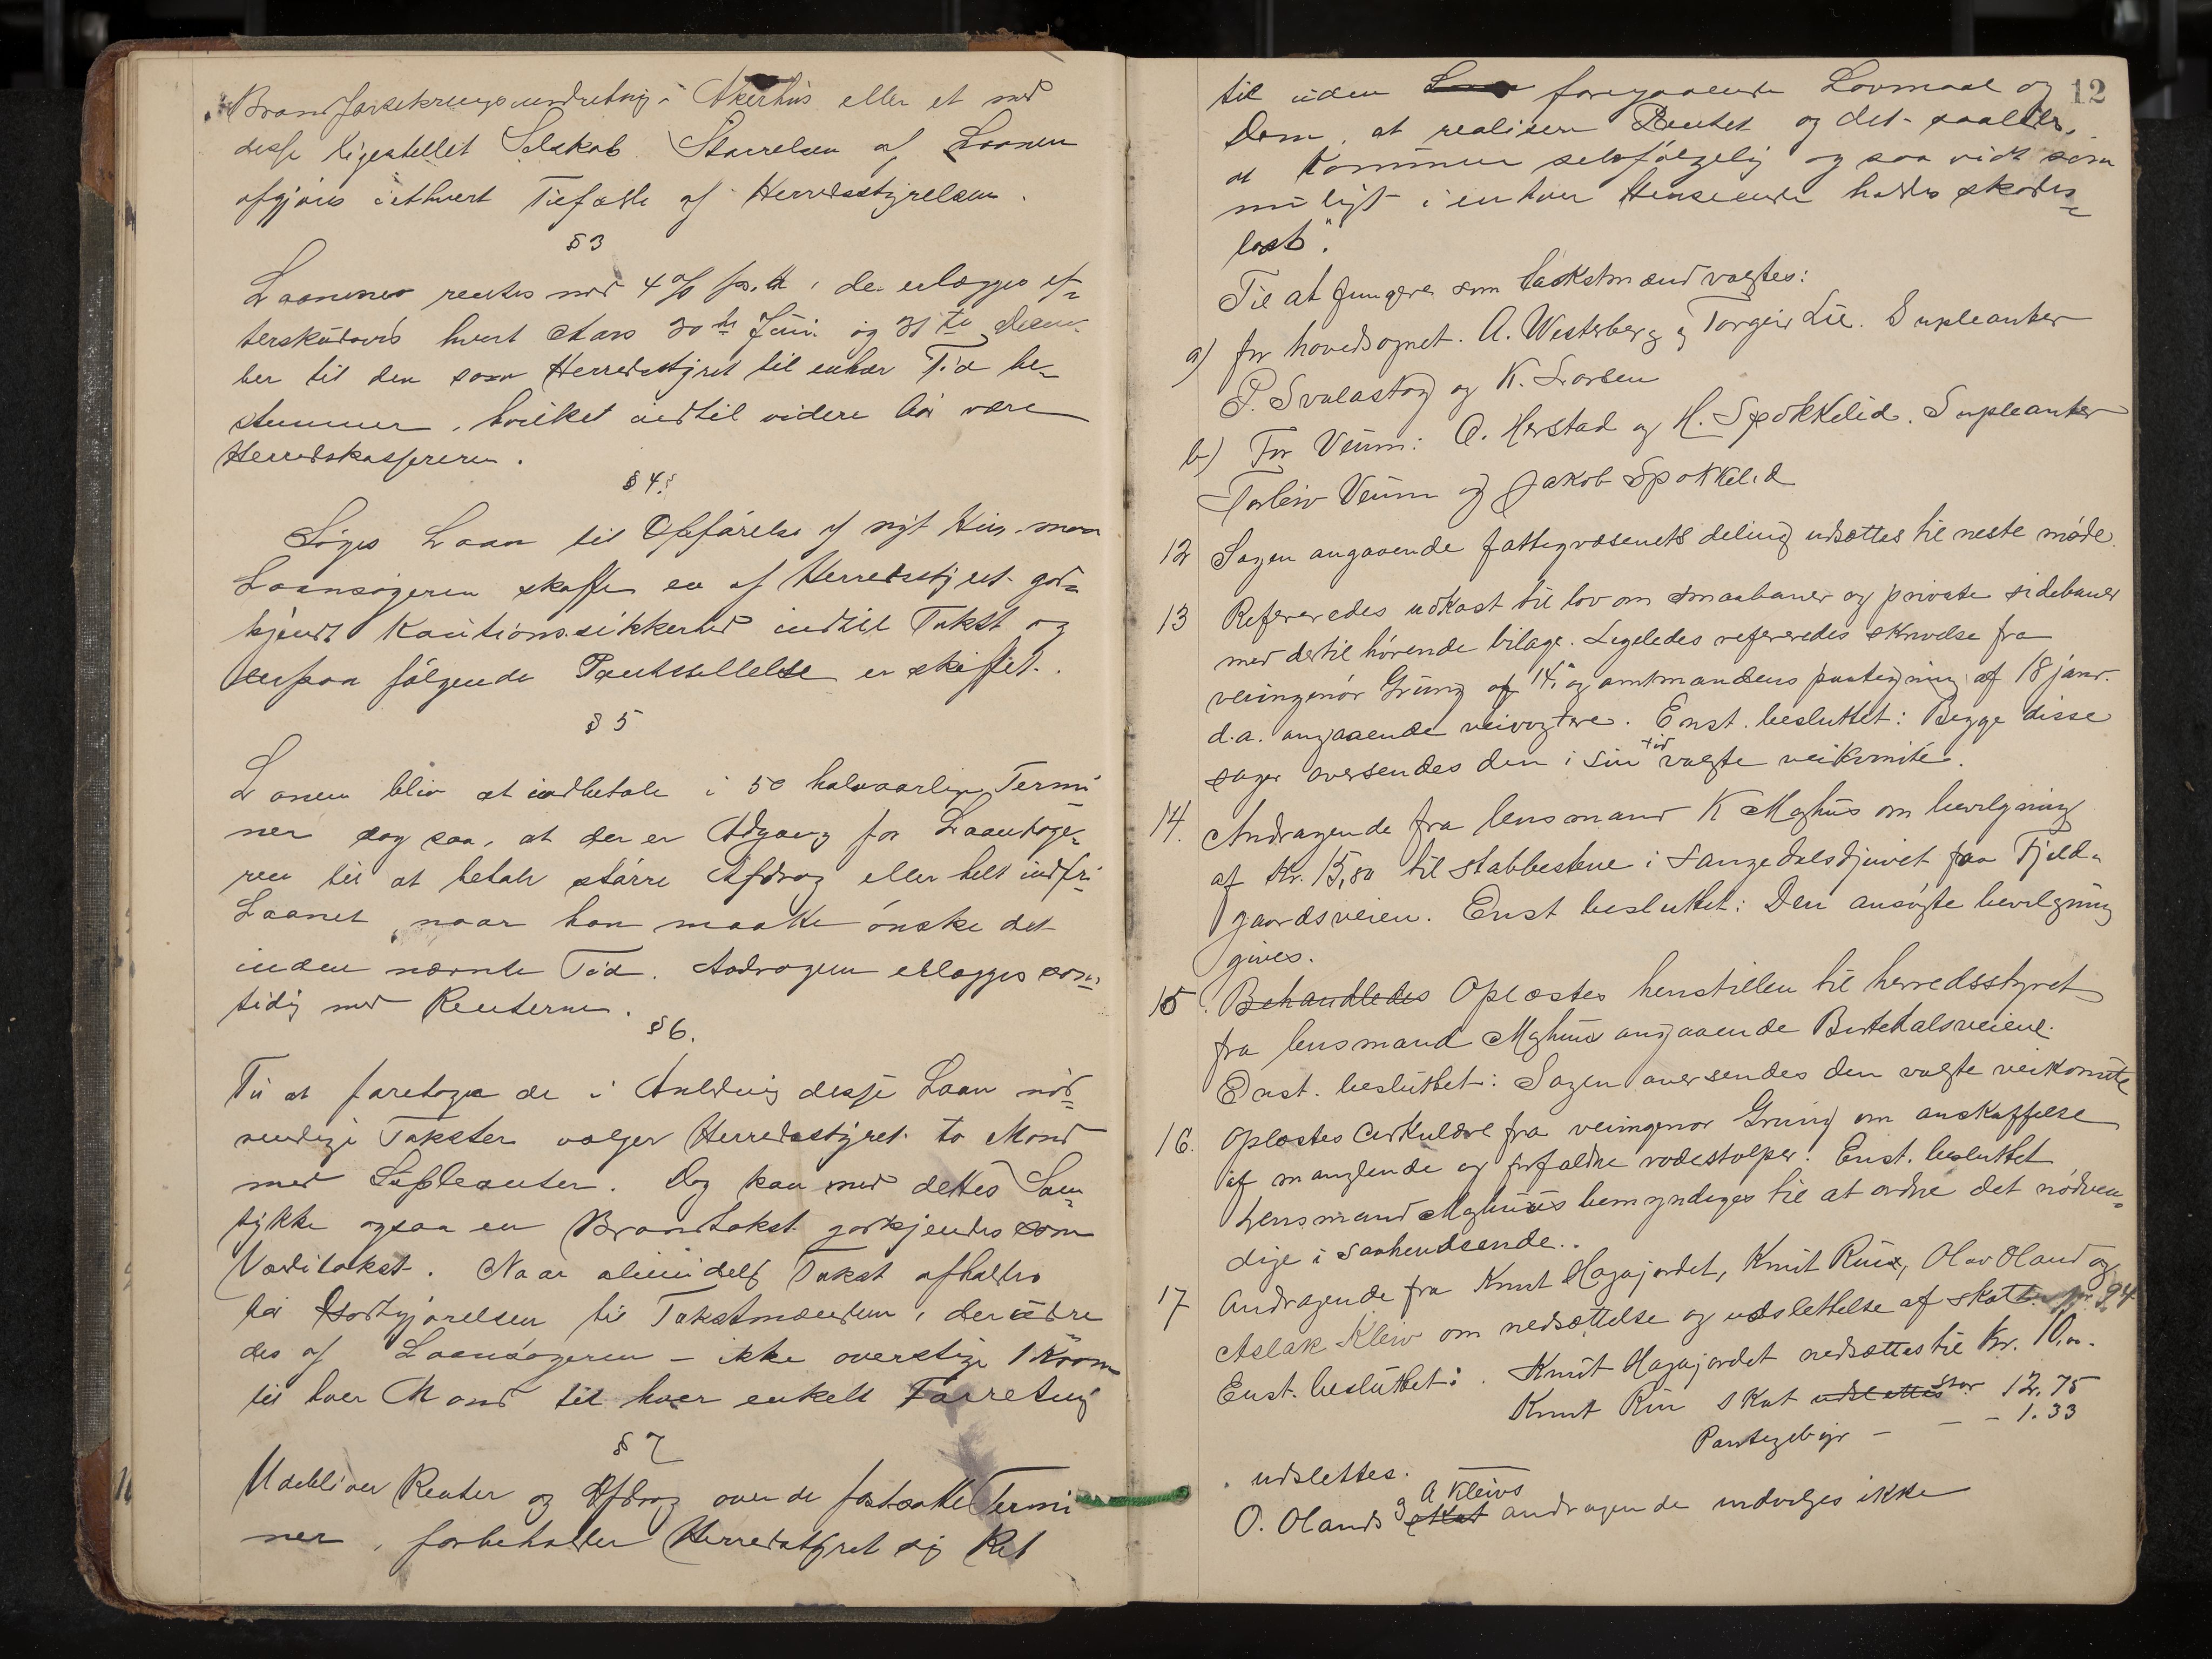 Brandforsikringsindretning i Akerhus eller et med
disse ligestillet Selskab. Størrelsen af Laanen
afgjøres i ethvert Tilfælde af Herredsstyrelsen.
§ 3
Laanene rentes med 4 % p. a., der erlægges ef-
terskudsvis hvert Aars 30te Juni og 31te Decem-
ber til den som Herredsstyret til enhver Tid be-
stemmer, hvilket indtil videre bør være
Herredskassereren.
§ 4.
Søges Laan til Opførelse af nyt Hus, maa
Laansøgeren skaffe en af Herredsstyret god-
kjendt Kautionssikkerhed indtil Takst og
derpaa følgende Pantstillelse er skaffet.
§ 5
Lanen bliv at indbetale i 50 halvaarlige Termi
ner dog saa, at der er Adgang for Laantage-
ren til at betale større Afdrag eller helt indfri
Laanet, naar han maatte ønske det
inden nævnte Tid. Avdragene erlægges sam-
tidig med Renterne.
§ 6.
Til at foretage de i Anledning disse Laan nød-
vendige Takster vælger Herredsstyret to Mænd
med Supleanter. Dog kan med dettes Sam-
tykke ogsaa en Brandtakst godkjendes som
Værditakst. Naar almindelig Takst afholdes
bør Godtgjørelsen til Takstmændene, der udre
des af Laansøgeren – ikke overstige 1 Krone
til hver Mand til hver enkelt Forretning
§ 7
Udebliver Renter og Afdrag over de fastsatte Termi
ner, forbeholder Herredsstyret sig Ret
12
til uden foregaaende Lovmaal og
Dom, at realisere Pantet og det saaledes,
at Kommunen selvfølgelig og saa vidt som
muligt i enhver Henseende holdes skades-
løst".
Til at fungere som takstmænd valgtes:
a) for hovedsognet. A. Westerberg og Torgeir Lie. Supleanter
P. Svalastog og K. Larsen
b) For Veum: O. Herstad og H. Spokkelid. Supleanter
Torleiv Veum og Jakob Spokkelid
12 Sagen angaaende fattigvæsenets deling udsættes til neste møde.
13 Refereredes udkast til lov om smaabaner og private sidebaner
med dertil hørende bilage. Ligeledes refereredes skrivelse fra
veiingenør Grung af 14. og amtmandens paategning af 18 janr.
d.a. angaaende veivogtere. Enst. besluttet: Begge disse
sager oversendes den i sin tid valgte veikomite.
14. Andragende fra lensmand K Moghus om bevilgning
af Kr. 15,80 til stabbestene i Langedalsdjuvet paa Fjeld-
gaardsveien. Enst besluttet: Den ansøgte bevilgning
gives.
15. Behandledes Oplæstes henstillen til herredsstyret
fra lensmand Moghus angaaende Birtedalsveiene.
Enst. besluttet: Sagen oversendes den valgte veikomite
16. Oplæstes Cirkulære fra veiingenør Grung om anskaffelse
af manglende og forfaldne rodestolper. Enst. besluttet
Lensmand Moghus bemyndiges til at ordne det nødven-
dige i saahendseende.
17 Andragende fra Knut Hagajordet, Knut Rui, Olav Oland og
Aslak Kleiv om nedsættelse og udslettelse af skatten pr 94
Enst. besluttet: Knut Hagajordet nedsættes til Kr. 10,00.
Knut Rui skat udslettes stor 12.75
Pantegebyr – – – 1.33
udslettes.
O. Olands og A Kleivs skat andragende indvilges ikke